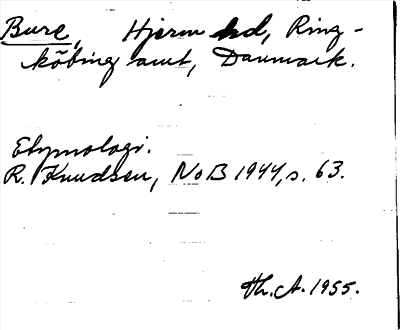 Bure, Hjerm hd, Ring-
köbing amt, Danmark.
Etymologi.
R. Knudsen, NoB 1944, s. 63.
Th. A. 1955.